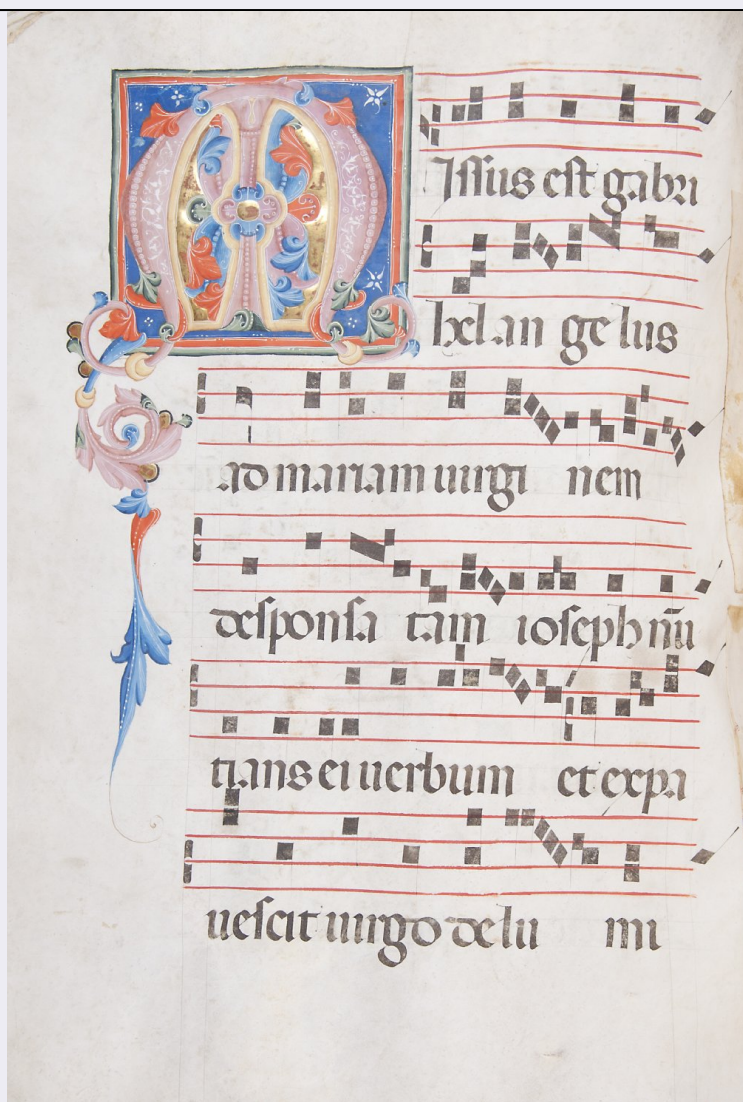 Missus est gabri
hel an ge lus
ad mariam uirgi nem
desponsa tam ioseph nu̅
tians ei uerbum et expa
uescit uirgo de lu mi